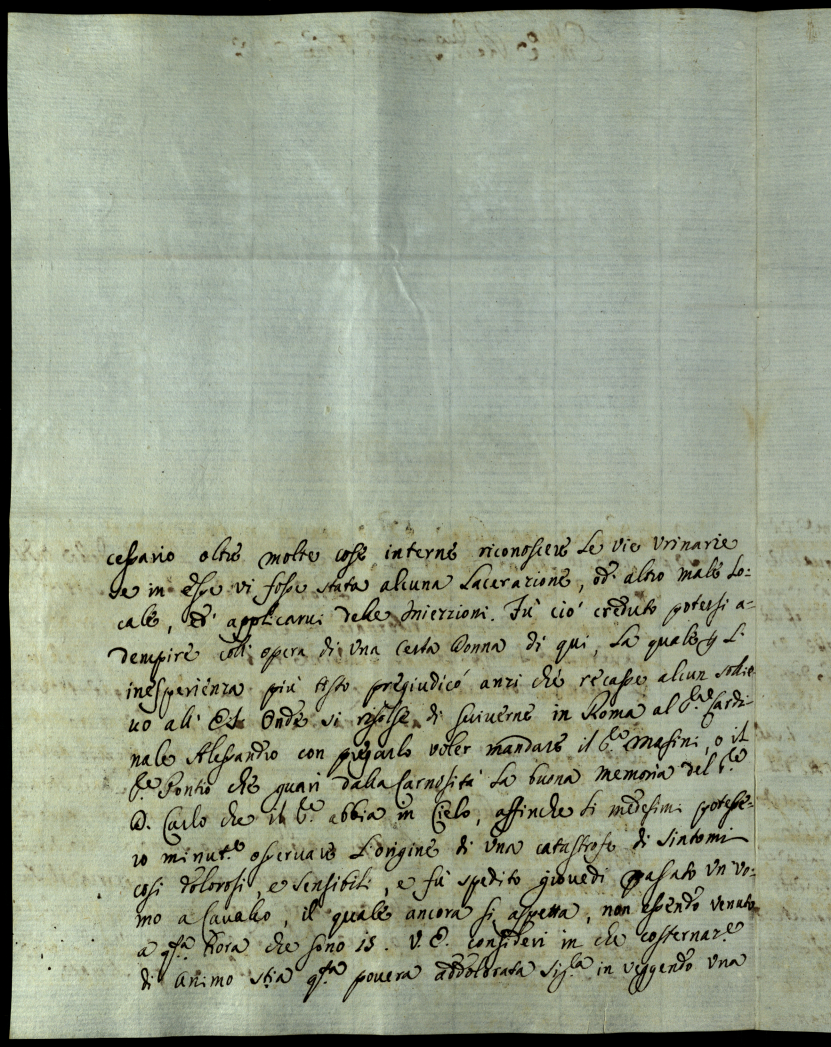 cessario oltre molte cose interne riconoscere le vie urinarie
se in esse vi fosse stata alcuna Lacerazione, od altro male Lo=
cale, ed applicarvi delle Iniezzioni. Fù ciò creduto potersi a=
dempire coll' opera di una certa Donna di qui, la quale p L'
inesperienza più tosto pregiudicò anzi che recasse alcun sollie
vo all' Onde si risolse di scrivere in Roma al Sig.re Cardi
nale Alessandro con pregarlo voler mandare il S.re Masini, o il
S.re Pontio che guarì dalla Carnosità la buona memoria del S.re
D. Carlo che il S.re abbia in Cielo, affinche li medesimi potesse=
ro minut.e osservare L'origine di una catastrofe di sintomi
così dolorosi, e sensibili, e fù spedito giovedì passato un vo=
mo a Cavallo, il quale ancora si aspetta, non essendo venuto
a q.sta hora che sono 15. V. E. consideri in che costernaz.e
di animo stia q.sta povera addolorata Sig.ra in veggendo una